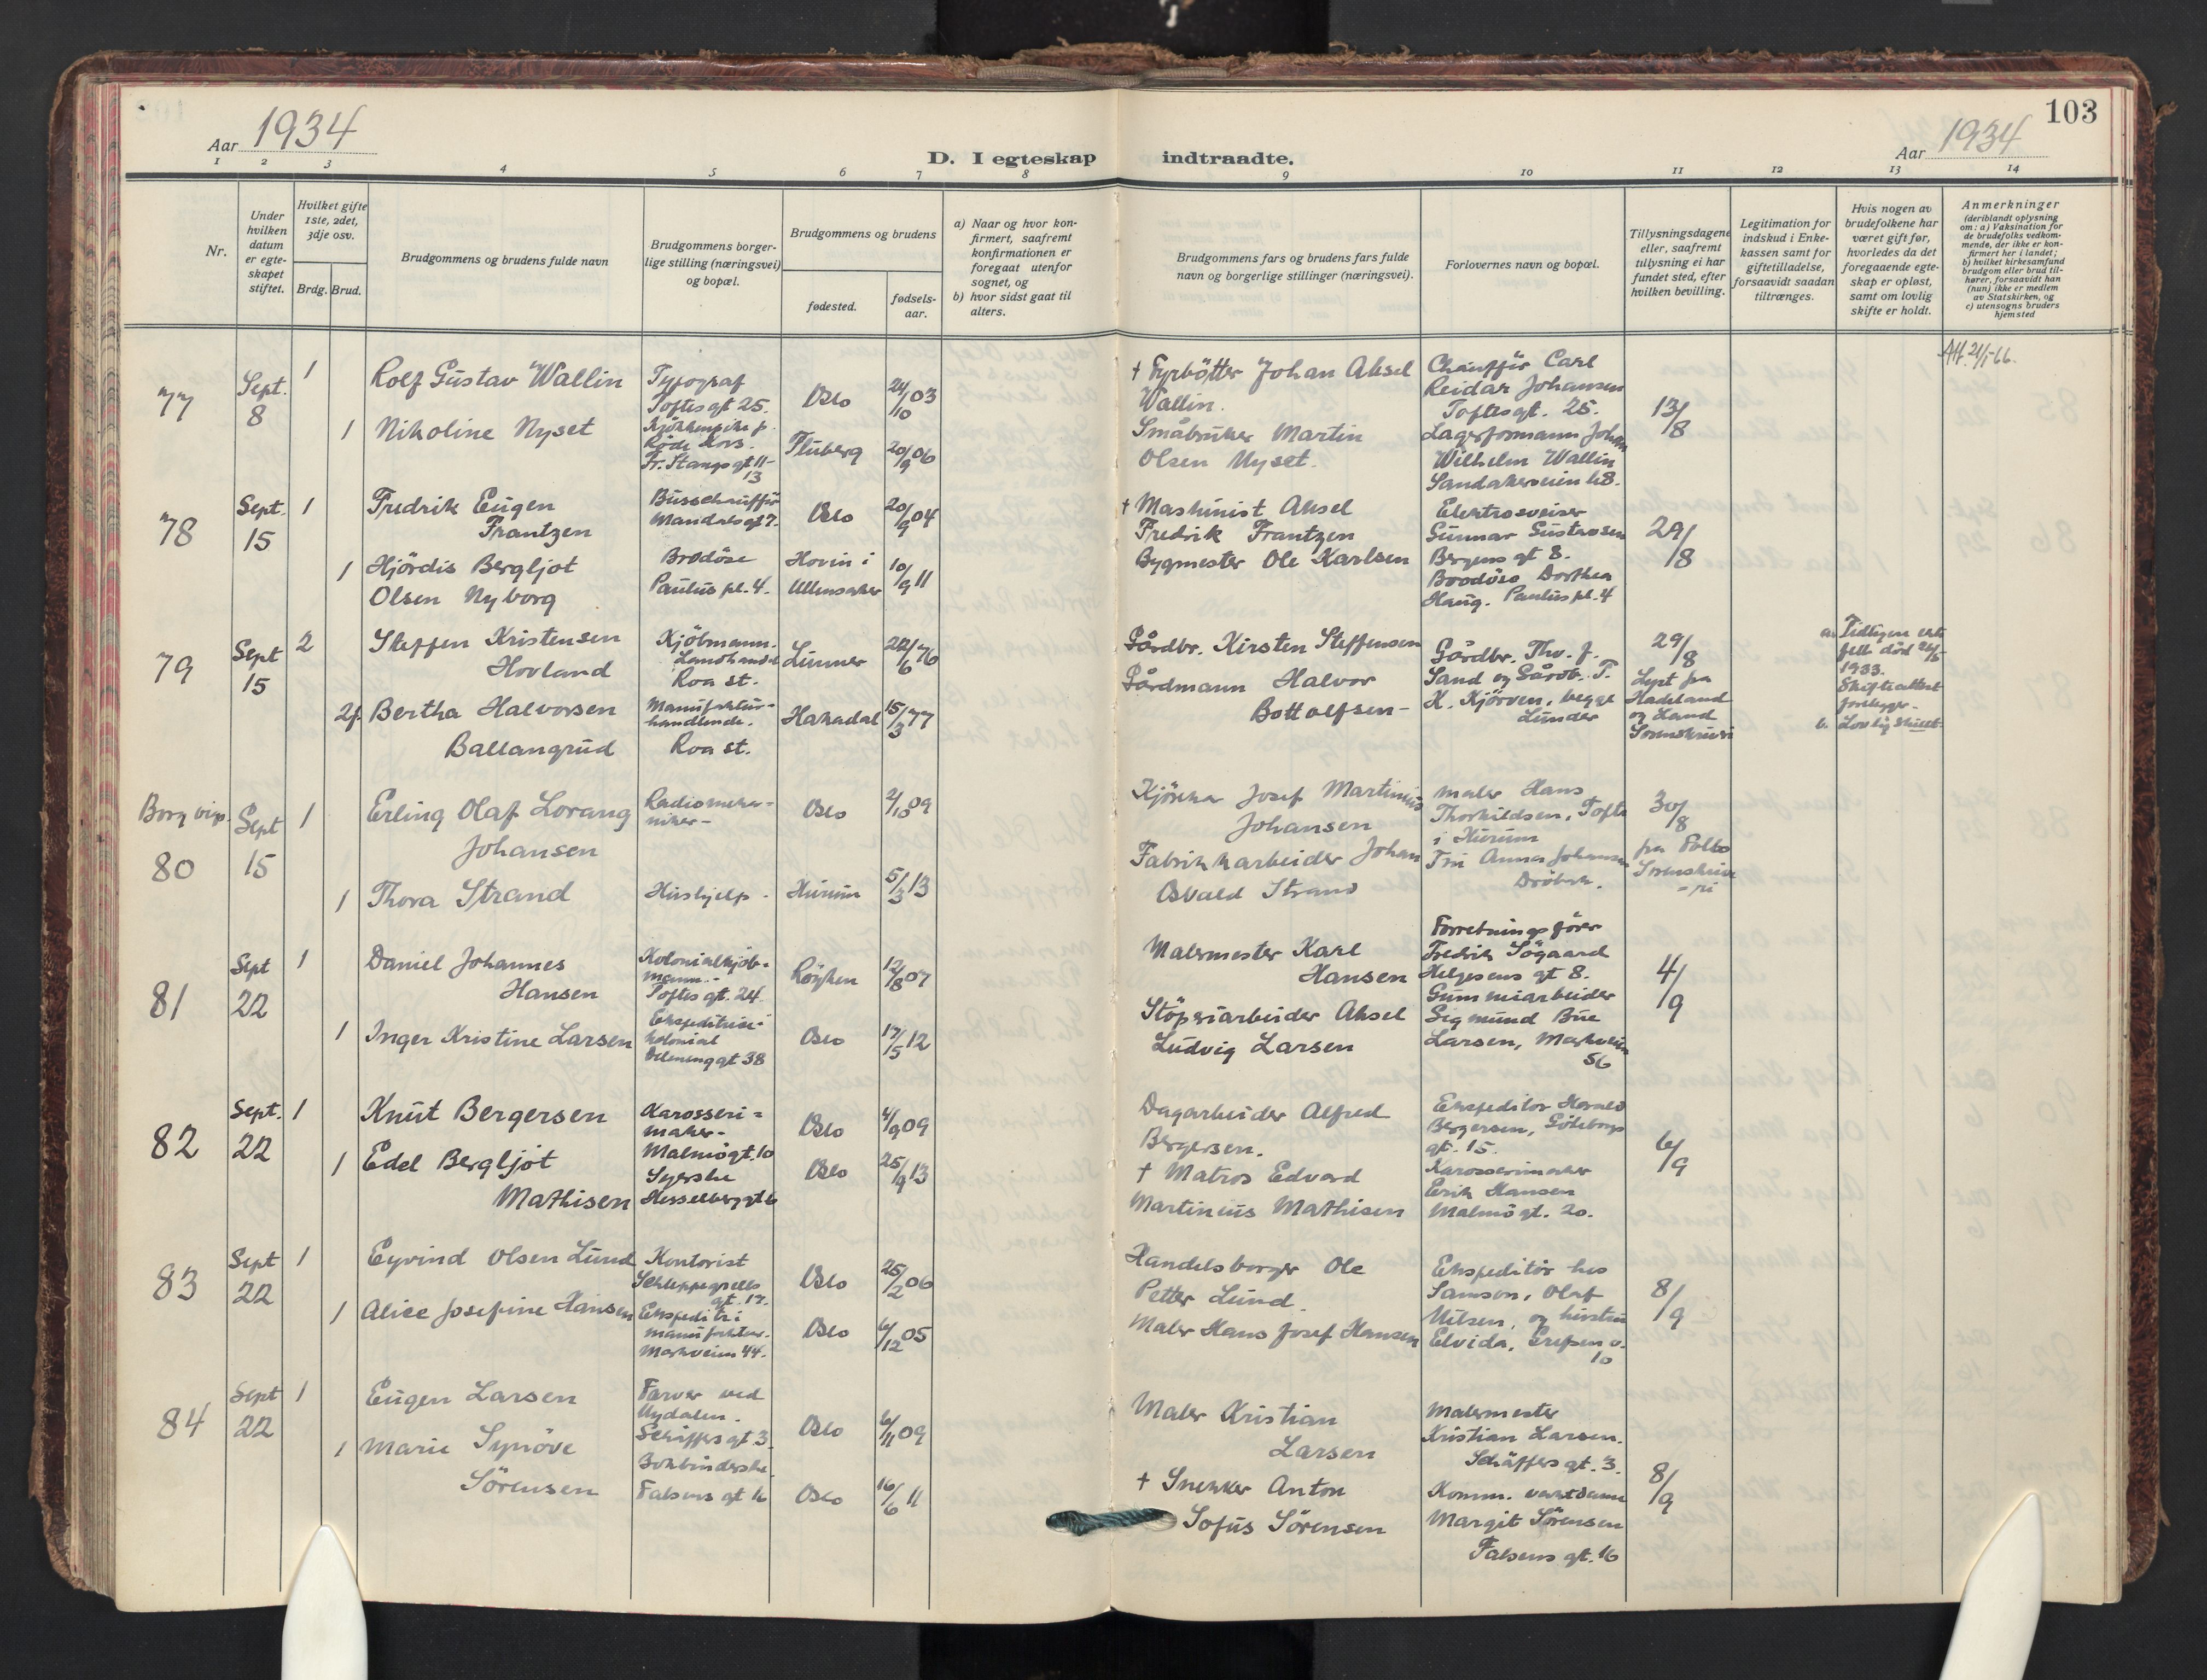 103
Aar 1934
Aar 1934
D. I egteskap indtraadte.
1 2 3 4 5 6 7 8 9 10 11 12 13 14
Nr.
Under hvilken datum er egte- skapet stiftet.
Hvilket gifte 1ste, 2det, 3dje osv.
Brdg. Brud.
Brudgommens og brudens fulde navn
Brudgommens borger-
lige stilling (næringsvei)
og bopæl.
Brudgommens og brudens
fødested.
fødsels-
aar.
a) Naar og hvor kon-
firmert, saafremt
konfirmationen er
foregaat utenfor
sognet, og
b) hvor sidst gaat til
alters.
Brudgommens fars og brudens fars fulde
navn og borgerlige stillinger (næringsvei).
Forlovernes navn og bopæl.
Tillysningsdagene
eller, saafremt
tillysning ei har
fundet sted, efter
hvilken bevilling.
Legitimation for
indskud i Enke-
kassen samt for
giftetilladelse,
forsaavidt saadan
tiltrænges.
Hvis nogen av
brudefolkene har
været gift før,
hvorledes da det
foregaaende egte-
skap er opløst,
samt om lovlig
skifte er holdt.
Anmerkninger
(deriblandt oplysning
om: a) Vaksination for
de brudefolks vedkom-
mende, der ikke er kon-
firmert her i landet;
b) hvilket kirkesamfund
brudgom eller brud til-
hører, forsaavidt han
(hun) ikke er medlem
av Statskirken, og
c) utensogns bruders
hjemsted
77
Sept. 8
1
Rolf Gustav Wallin
Typograf
Toftesgt 25.
Oslo
24/10 03
† Fyrbötter Johan Aksel
Wallin.
Chaufför Carl
Reidar Johansen
Toftesgt. 25.
13/8
Att. 21/1-66.
1
Nikoline Nyset
Röde Kors.
Fr. Stangsgt 11-
13
Fluberg
20/9 06
Småbruker Martin
Olsen Nyset.
Lagerformann Johan
Wilhelm Wallin
Sandakerveien 68.
78
Sept. 15
1
Fredrik Eugen
Frantzen
Busschauffør
Mandalsgt 7.
Oslo
20/9 04
† Maskinist Aksel
Fredrik Frantzen
Elektrosveiser
Gunnar Gustavsen
Bergens gt 8.
29/8
1
Hjördis Bergljot
Olsen Nyborg
Brødöse
Paulus pl. 4.
Hovin i
Ullensaker
10/9 11
Bygmester Ole Karlsen
Brødöse Dorthea
Haug. Paulus pl. 4
79
Sept 15
2
Steffen Kristensen
Hovland
Kjöbmann.
Landhandel
Roa st.
Lunner
22/6 76
Gårdbr. Kirsten Steffensen
Gårdbr. Thv. J.
Sand og Gårdb. T.
K. Kjörven, begge
Lunder
29/8
Lyst fra
Hadeland
og Land
Sorenskriveri
a. Tidligere ekte
felle död 26/5
1933.
Skifteattest
foreligger.
2f.
Bertha Halvorsen
Ballangrud
Manufaktur-
handlende.
Roa st.
Hakadal
15/3 77
Gårdmann Halvor
Bottolfsen-
b. Lovlig skilt
Borg. vigs.
80
Sept 15
1
Erling Olaf Lorang
Johansen
Radiomeka-
niker-
Oslo
2/10 09
Kjörekar Josef Martinius
Johansen
Maler Hans
Thorkildsen, Tofte
i Hurum
30/8
fra Follo
Sorenskrive
-ri
1
Thora Strand
Hushjelp.
Hurum
5/3 13
Fabrikkarbeider Johan
Osvald Strand
Fru Anna Johansen
Dröbak.
81
Sept 22
1
Daniel Johannes
Hansen
Kolonialkjöb-
mann.
Toftesgt. 24.
Röyken
12/8 07
Malermester Karl
Hansen
Forretningsförer
Fredrik Sögaard
Helgesens gt 8.
4/9
1
Inger Kristine Larsen
Ekspeditrise
kolonial
Delenenggt 38
Oslo
17/5 12
Stöperiarbeider Aksel
Ludvig Larsen
Gummiarbeider
Sigmund Bue
Larsen, Markveien
56
82
Sept. 22
1
Knut Bergersen
Karosseri=
maker-
Malmögt. 10
Oslo
4/9 09
Dagarbeider Alfred
Bergersen.
Ekspeditör Harald
Bergersen, Göteborg
gt. 15.
6/9
1
Edel Bergljot
Mathisen
Syerske
Hesselberggt 6
Oslo
25/9 13
† Matros Edvard
Martinius Mathisen
Karosserimaker
Erik Hansen
Malmögt. 20.
83
Sept 22
1
Eyvind Olsen Lund
Kontorist
Schleppegrells
gt. 17.
Oslo
25/2 06
Handelsborger Ole
Petter Lund.
Ekspeditör hos
Samson, Olaf
Nilsen, og hustru
Elvida, Grefsen v.
10
8/9
1
Alice Josefine Hansen
Ekspeditr. i
manufaktur.
Markveien 44.
Oslo
6/12 05
Maler Hans Josef Hansen
84
Sept 22
1
Eugen Larsen
Farver ved
Nydalen.
Schäffersgt 3.
Oslo
6/11 09
Maler Kristian
Larsen
Malermester
Kristian Larsen.
Schäffersgt. 3.
8/9
1
Marie Synöve
Sörensen
Bokbinderske.
Falsens gt 16
Oslo
16/6 11
† Snekker Anton
Sofus Sörensen
Komm. vertsdame
Margit Sörensen
Falsens gt. 16